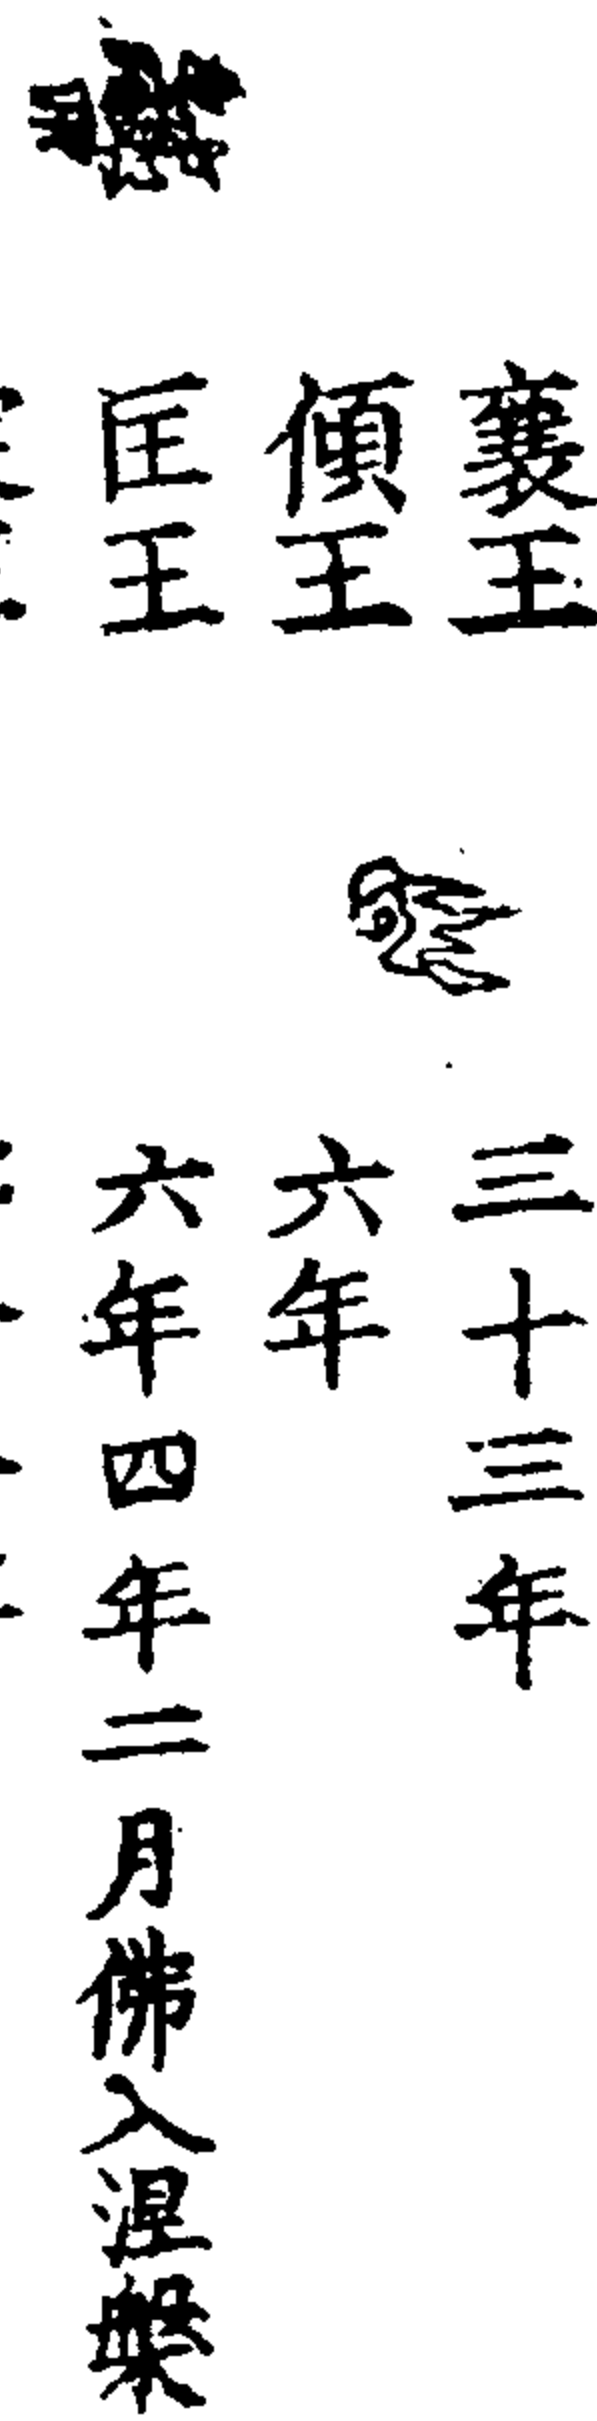 襄王 三十三年
傾王 六年
匡王 六年四年二月佛入涅槃